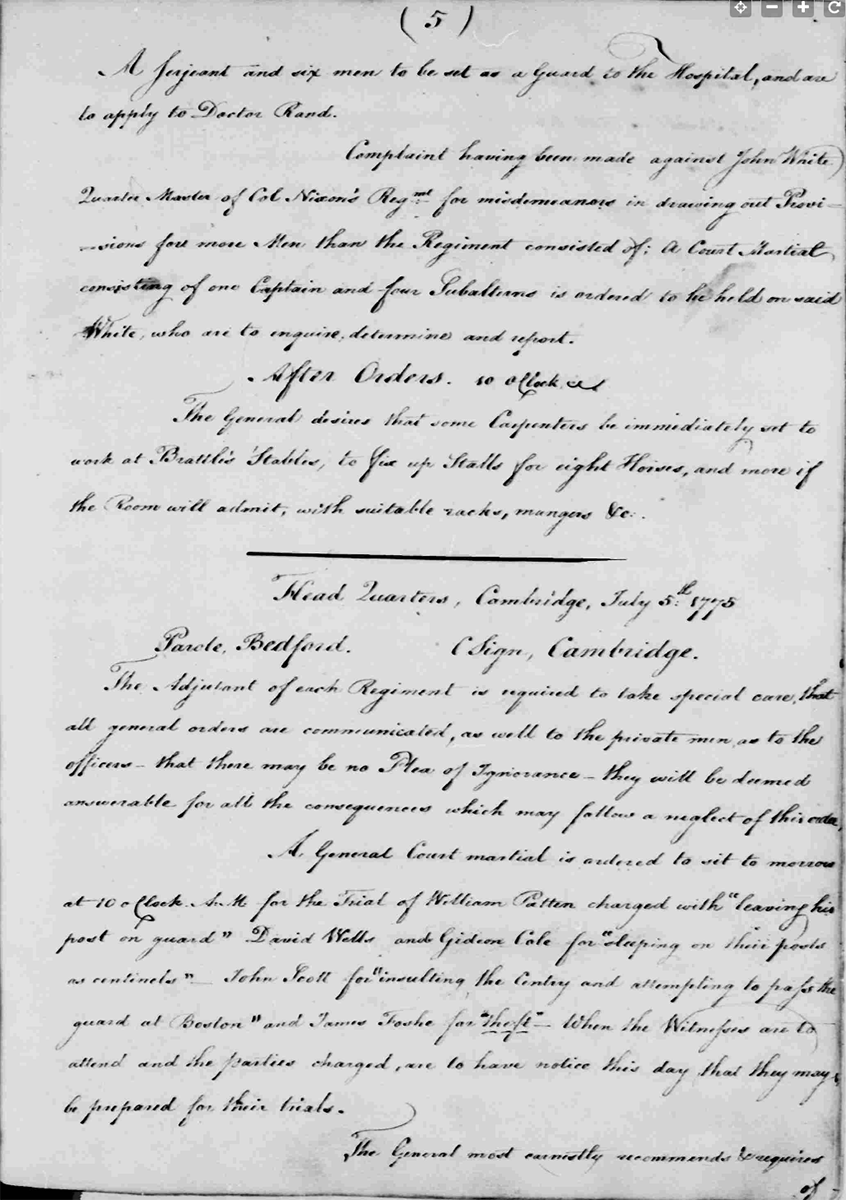 ( 5 )
A Serjeant and six men to be set as a Guard to the Hospital, and are
to apply to Doctor Rand.
Complaint having been made against John White
Quarter Master of Col Nixon's Regmt for misdemeanors in drawing out Provi-
-sions fore more Men than the Regiment consisted of; A Court Martial
consisting of one Captain and four Subalterns is ordered to be held on said
White, who are to enquire, determine and report.
After Orders. 10 oClock
The General desires that some Carpenters be immediately set to
work at Brattle's Stables, to fix up Stalls for eight Horses, and more if
the Room will admit, with suitable racks, mangers &c.
Head Quarters, Cambridge, July 5th 1775
Parole, Bedford. CSign, Cambridge.
The Adjutant of each Regiment is required to take special care, that
all general orders are communicated, as well to the private men, as to the
officers - that there may be no Plea of Ignorance - they will be deemed
answerable for all the consequences which may follow a neglect of this order.
A General Court martial is ordered to sit to morrow
at 10 oClock A.M for the Trial of William Patten charged with "leaving his
post on guard" David Wells and Gideon Cole for "sleeping on their posts
as centinels" - John Scott for "insulting the Centry and attempting to pass the
guard at Boston" and James Foshe for "theft" - When the Witnesses are to
attend and the parties charged, are to have notice this day that they may
be prepared for their trials.
The General most earnestly recommends & requires
of